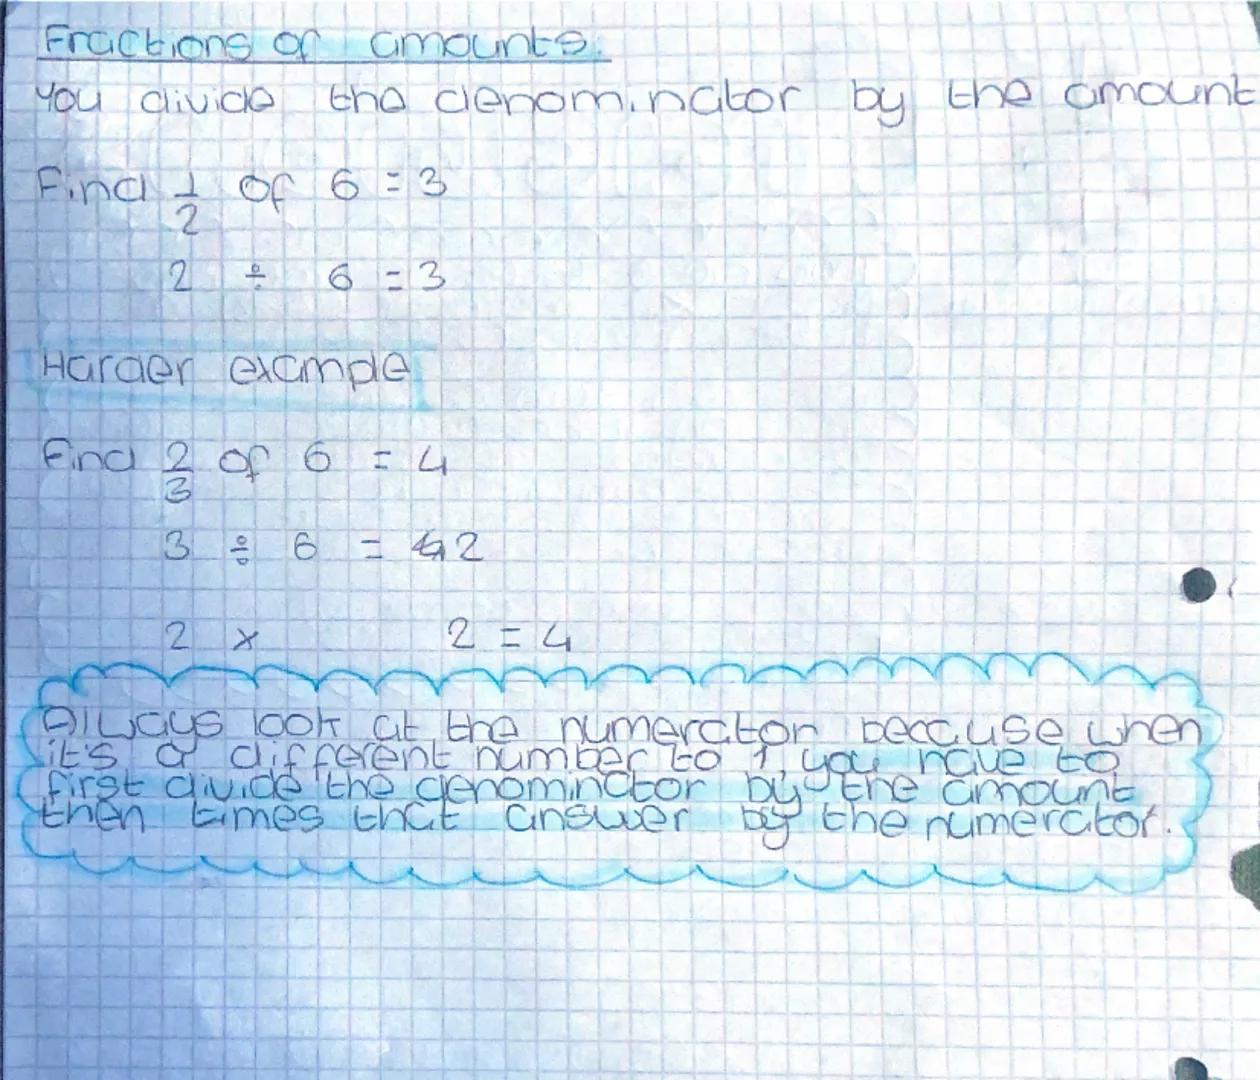 Fractions of amounts.
You divide the denominator by the amount
Find 1/2 of 6 = 3
2 ÷ 6 = 3
Harder example
Find 2/3 of 6 = 4
3 ÷ 6 = 2
2 x 2 = 4
Always look at the numerator because when
it's a different number to 1 you have to
first divide the denominator by the amount
then times that answer by the numerator.